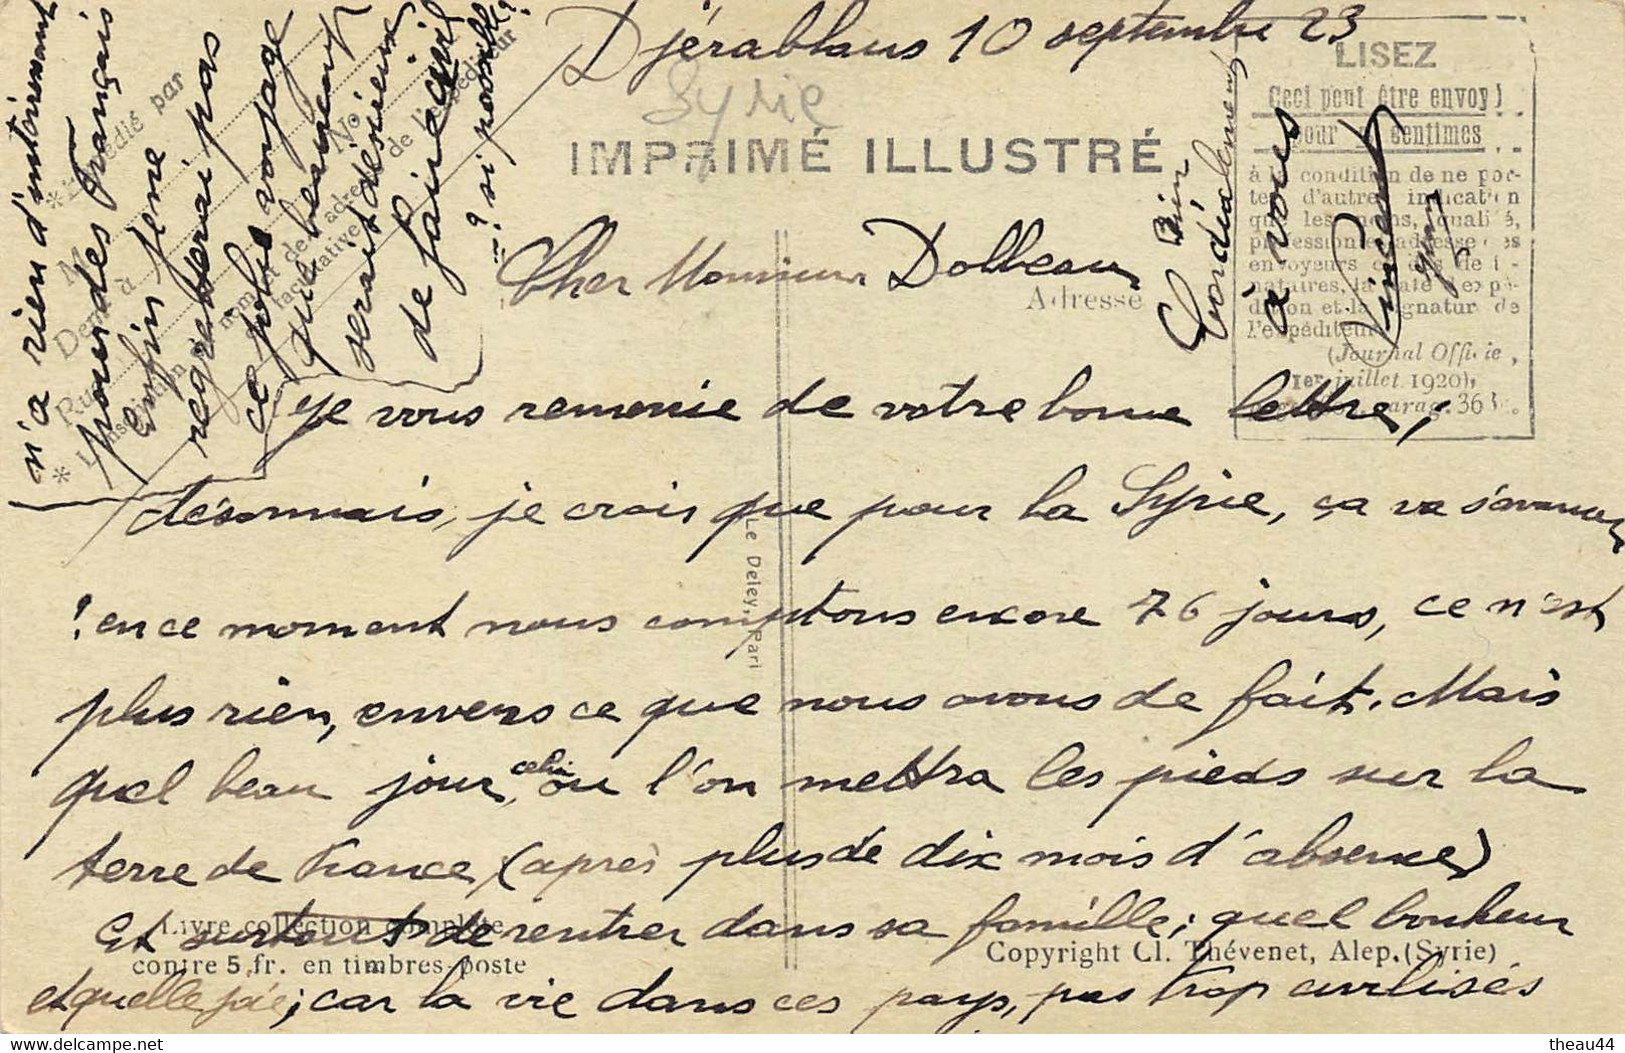 Djérablaus 10 septembre 23
Syrie
IMPRIMÉ ILLUSTRÉ
Cher Monsieur Dolbeau
Adresse
Je vous remercie de votre bonne lettre,
désormais, je crois que pour la Syrie, ça va s'avancer
! en ce moment nous comptons encore 76 jours, ce n'est
plus rien, envers ce que nous avons de fait. Mais
quel beau jour, celui où l'on mettra les pieds sur la
terre de France, (après plus de dix mois d'absence)
Et surtout de rentrer dans sa famille; quel bonheur
et quelle joie; car la vie dans ces pays, pas trop civilisés
n'a rien d'intéressant
pour des Français
enfin je ne
regretterai pas
ce polie voyage
que beaucoup
serait désireux
de faire
? si possible?
Bien
Cordialement
à vous
Vincent
* Expédié par
M
Dem<sup>t</sup> à
Rue
N<sup>o</sup>
* L'inscription
nom et de l'adresse de l'expéditeur
facultative
LISEZ
Ceci peut être envoyé
pour centimes
à la condition de ne por-
ter d'autre indication
que les noms, qualité,
profession et adresse des
envoyeurs
nataires, la date d'expé-
dition et la signature de
l'expéditeur
(Journal Officie,
1er juillet 1920),
parag. 363
Le Deley, Pari
Livre collection complète
contre 5 fr. en timbres-poste
Copyright Cl. Thévenet, Alep. (Syrie)
https://www.delcampe.net
theau44